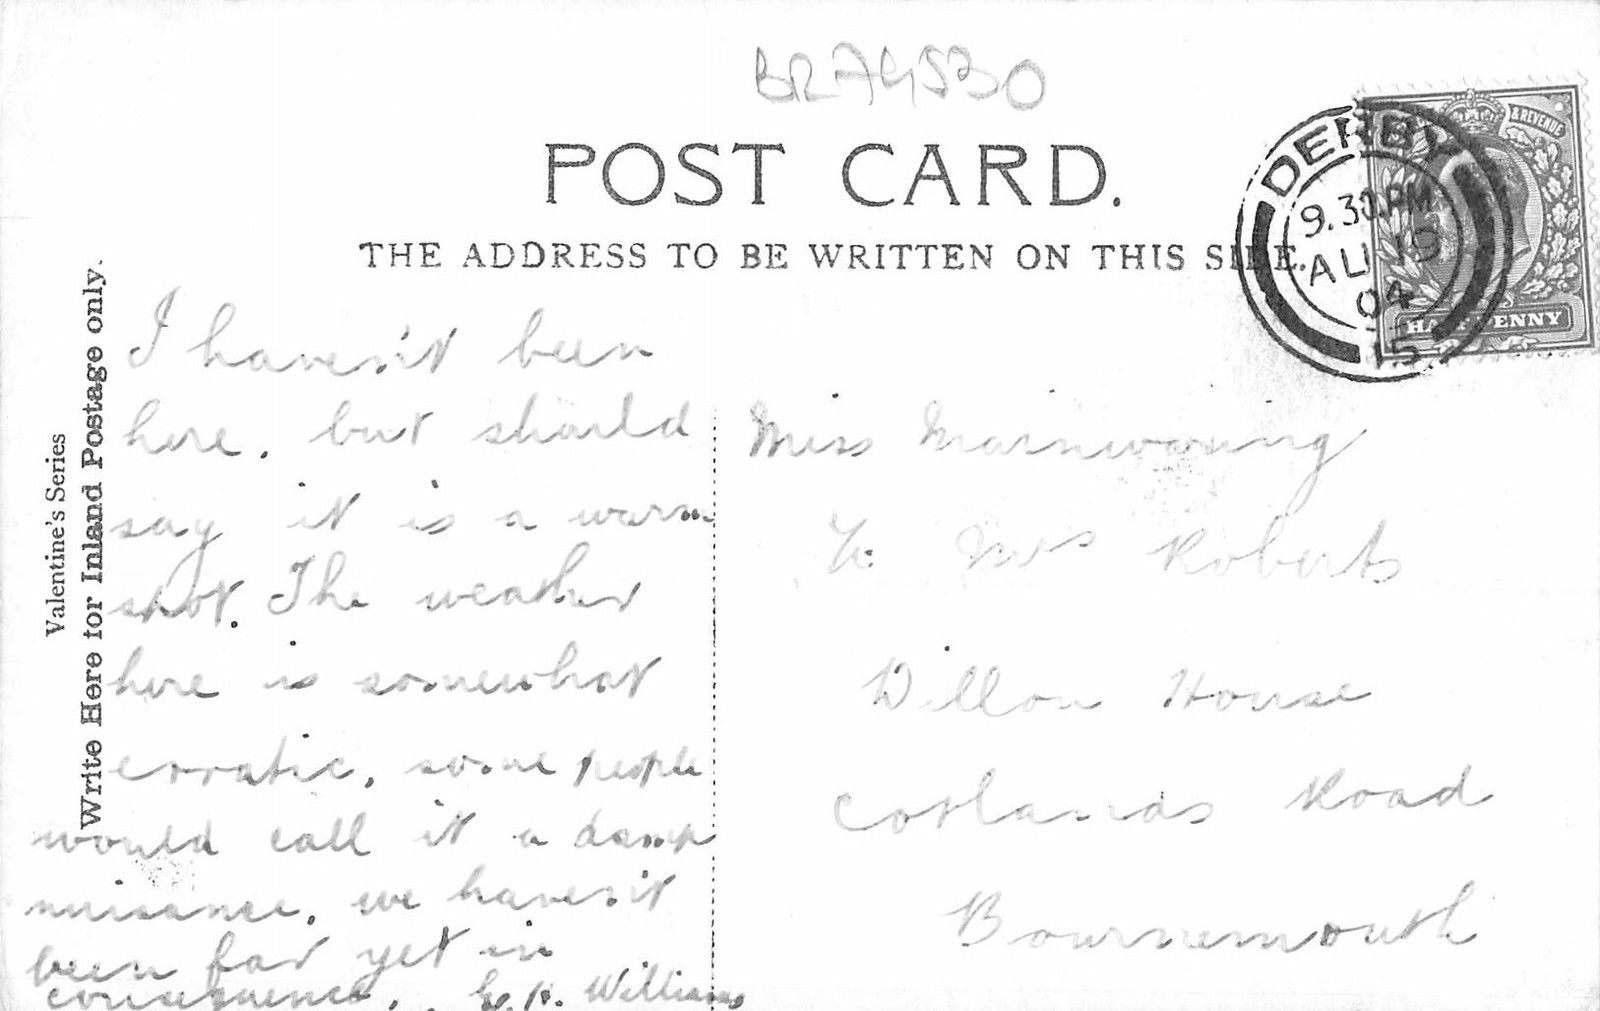 BR74530
POST CARD.
THE ADDRESS TO BE WRITTEN ON THIS SIDE.
DERBY
9.30PM
AU 19
04
15
& REVENUE
HALFPENNY
Valentine's Series
Write Here for Inland Postage only.
I haven't been
here, but should
say it is a warm
spot. The weather
here is somewhat
erratic, some people
would call it a damp
nuisance, we haven't
been far yet in
consequence. Williams
Miss Mainwaring
Mrs Roberts
Dillon House
Cotlands Road
Bournemouth